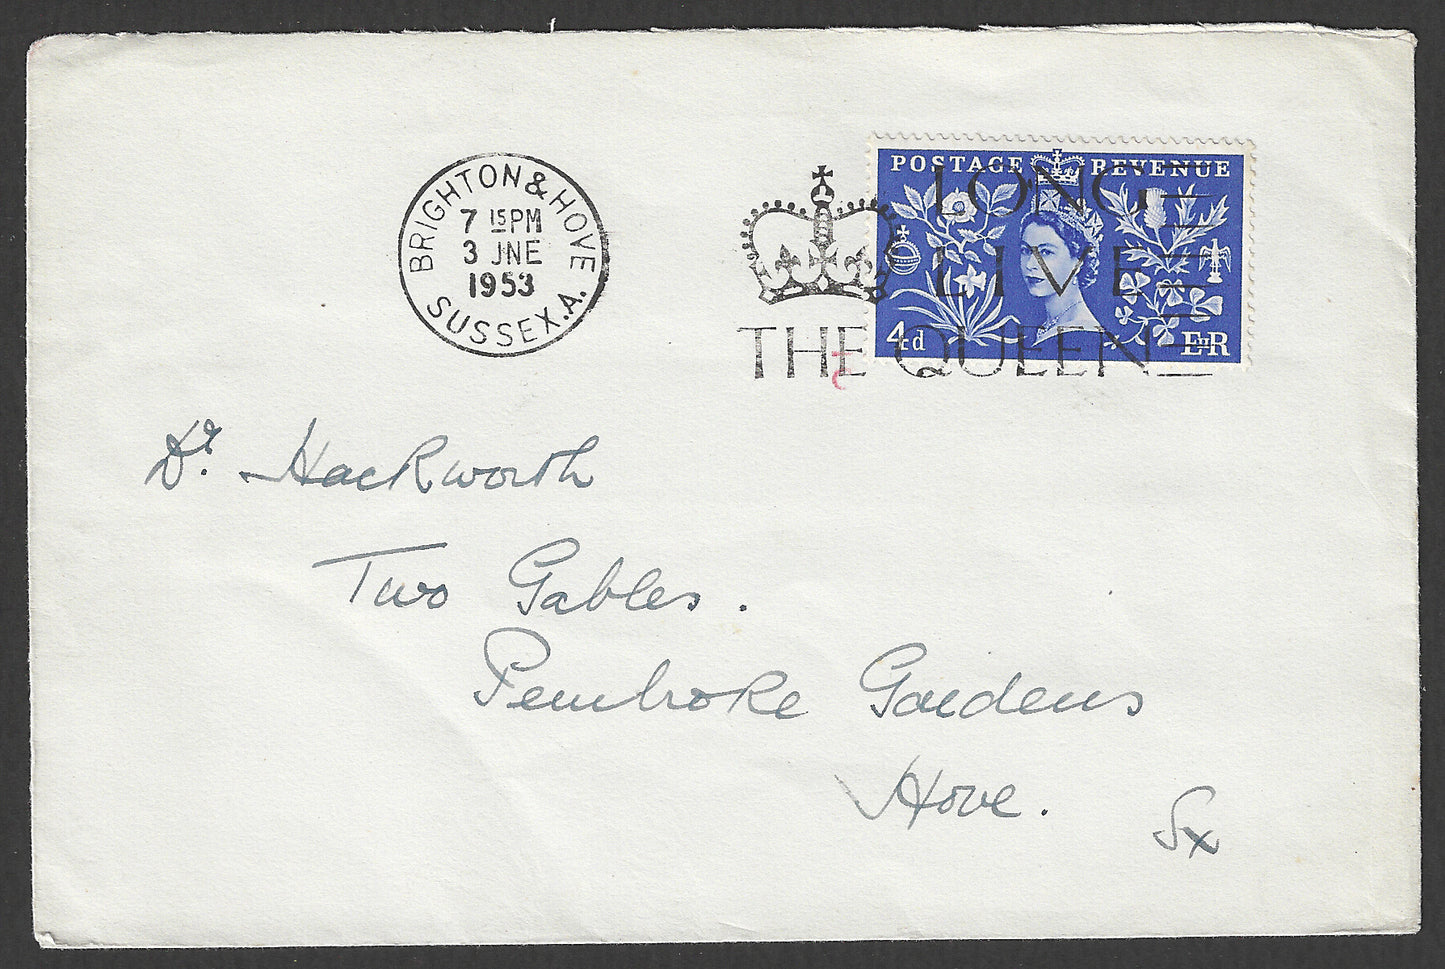 BRIGHTON & HOVE
7 15 PM
3 JNE
1953
SUSSEX.A.
LONG
LIVE
THE QUEEN
POSTAGE REVENUE
4d
EIIR
Dr. Hackworth
Two Gables.
Pembroke Gardens
Hove.
Sx